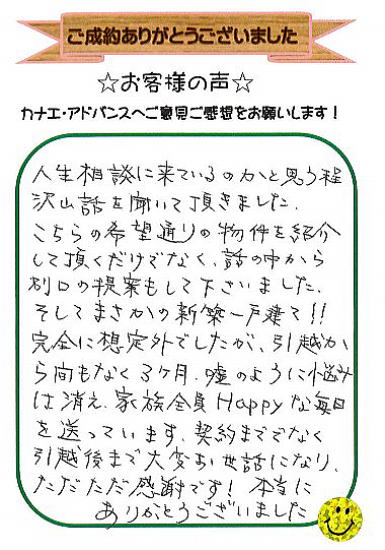 ご成約ありがとうございました
☆お客様の声☆
カナエ・アドバンスへご意見ご感想をお願いします！
人生相談に来ているのかと思う程
沢山話を聞いて頂きました。
こちらの希望通りの物件を紹介
して頂くだけでなく、話の中から
別口の提案もして下さいました。
そしてまさかの新築一戸建て!!
完全に想定外でしたが、引越か
ら間もなく3ヶ月、嘘のように悩み
は消え、家族全員Happyな毎日
を送っています。契約まででなく
引越後まで大変お世話になり、
ただただ感謝です！本当に
ありがとうございました